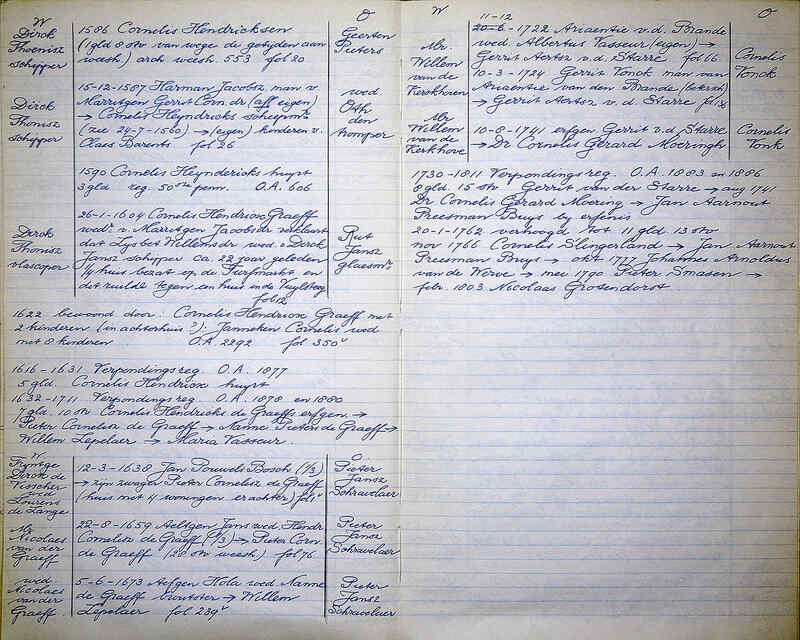 W
O
Dirck
Thoenisz
schipper
1586 Cornelis Hendricksen
(1 gld 8 stv van wege de getijden aan
weesh) arch weesh. 553 fol 20
Geerten
Pieters
Dirck
Thonisz
schipper
15-12-1587 Harman Jacobsz man v.
Marritgen Gerrit Corn. dr (aff eigen)
→ Cornelis Heyndricks scheepmr
(zie 24-7-1560) → (eigen) kinderen v.
Claes Barents fol 26
wed.
Oth
den
1590 Cornelis Heyndericks huyrt
3 gld reg. 50ste penn. O.A. 606
Dirck
Thonisz
vlascoper
26-1-1604 Cornelis Hendricxz Graeff
wedr v. Marritgen Jacobsdr verklaert
dat Lysbet Willemsdr wed. v. Dirck
Jansz schipper ca 22 jaar geleden
1/4 huis bezat op de Turfmarkt en
dit ruilde tegen een huis in de Kuylsteeg
fol 12
Rut
Jansz
glaesmr
1622 bewoond door: Cornelis Hendricxz Graeff met
2 kinderen (in achterhuis?): Janneken Cornelis wed
met 8 kinderen. O.A. 2292 fol 350v
1616-1631 Verpondingsreg. O.A. 1877
5 gld. Cornelis Hendricxz huyrt
1632-1711 Verpondingsreg. O.A. 1878 en 1880
7 gld. 10 stv Cornelis Hendricks de Graeffs erfgen. →
Pieter Cornelisz de Graeff → Nanne Pieters de Graeff →
Willem Lepelaer → Maria Vasseur.
W
O
Dirck de
Visscher
wed
Lourens
de Lange
12-3-1638 Jan Pouwels Bosch (1/3)
→ zijn zwager Pieter Cornelisz de Graeff
(huis met 4 woningen erachter) fol 1v
Pieter
Jansz
Schravelaer
Mr.
Nicolaes
van der
Graeff
22-8-1659 Aeltgen Jans wed. Hendr
Cornelisz de Graeff (1/3) → Pieter Corn
de Graeff (20 stv weesh) fol 76
Pieter
Jansz
Schravelaer
wed
Nicolaes
van der
Graeff
5-6-1673 Aefgen Hola wed Nanne
de Graeff → Willem
Lepelaer fol 239v
Pieter
Jansz
Schravelaer
W
O
Mr.
Willem
van de
Kerckhoven
11-12
20-6-1722 Ariaentie v.d. Brande
wed. Albertus Vasseur (eigen) →
Gerrit Aertsz v.d. Starre fol 66
10-3-1724 Gerrit Tonck man van
Ariaentie van den Brande
→ Gerrit Aertsz v.d. Starre
Cornelis
Tonck
Mr
Willem
van de
Kerkhove
10-8-1741 erfgen Gerrit v.d. Starre
→ Dr Cornelis Gerard Moeringh
Cornelis
Tonk
1730-1811 Verpondingsreg. O.A. 1883 en 1886
8 gld. 15 stv Gerrit van der Starre → aug 1741
Dr Cornelis Gerard Moering → Jan Aarnout
Preesman Buys bij erfenis
20-1-1762 verhoogd tot 11 gld 13 stv
nov 1766 Cornelis Slingerland → Jan Aarnout
Preesman Buys → okt 1777 Johannes Arnoldus
van de Werve → mei 1790 Pieter Smasen →
febr. 1803 Nicolaas Grosendorst